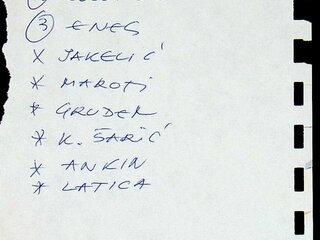 ③ ENES
* JAKELIĆ
* MAROTI
* GRUDEN
* K. ŠARIĆ
* ANKIN
* LATICA